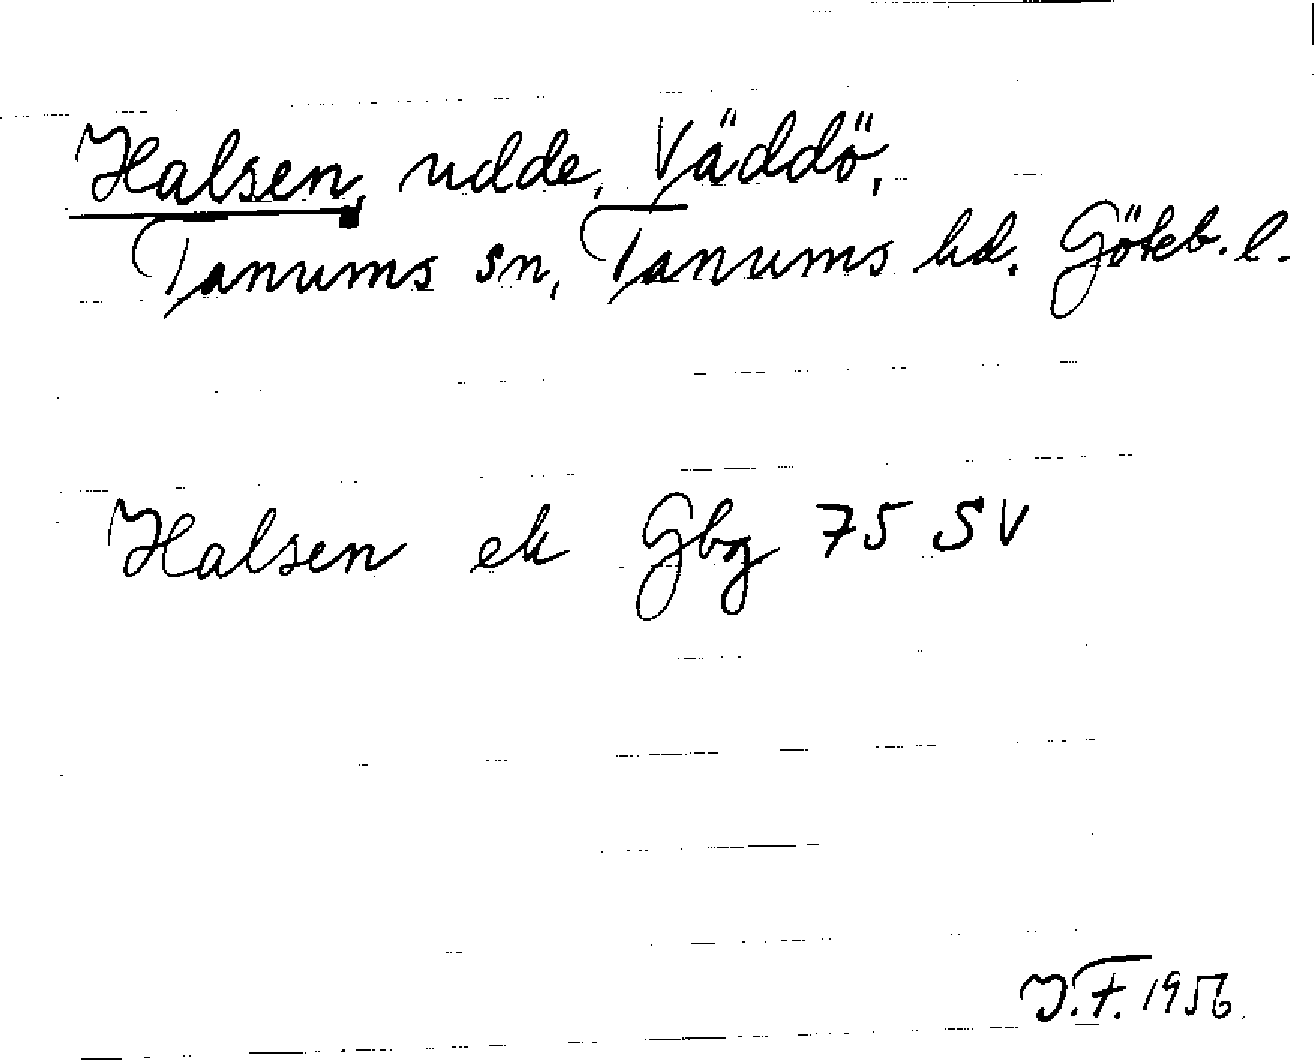 Halsen, udde, Väddö,
Tanums sn, Tanums hd. Göteb. l.
Halsen ek Gbg 75 SV
J.F. 1956